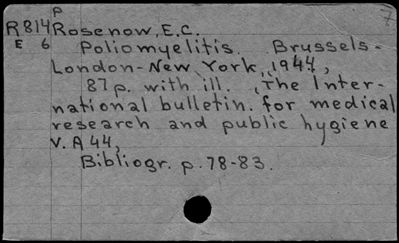 P 7
R814 Rosenow, E.C.
E 6 Poliomyelitis. Brussels-
London-New York, 1944,
87p. with ill. (The Inter-
national bulletin. for medical
research and public hygiene
V. A 44,
Bibliogr. p. 78-83.